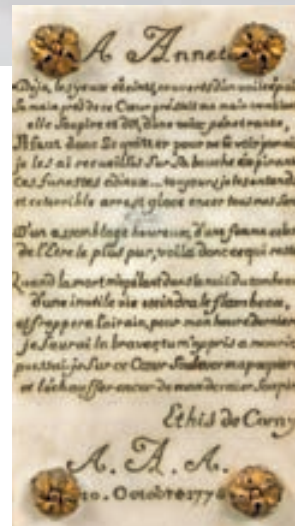 A Annet
Deja, les yeux éteints, couverts d'un voile épais
Sa main près de ce Cœur pressait ma main tremblante
elle Soupire et dit, d'une voix pénétrante,
Il faut donc Se quitter pour ne Se voir jamais
je les ai recueillis Sur Sa bouche expirante
Ces funestes adieux... toujours je les entends
et ce terrible arrest glace encor tous mes Sens
D'un assemblage heureux, d'une femme celeste
de l'Etre le plus pur, voila donc ce qui reste
Quand la mort m'apellant dans la nuit du tombeau
d'une inutile vie eteindra le flambeau,
et frappera l'airain, pour mon heure derniere
je Saurai la braver, tu m'appris a mourir
puissai-je Sur ce Cœur Soulever ma paupiere
et l'échauffer encor de mon dernier Soupir
Ethis de Corny
A. A. A.
10. Octobre 1776